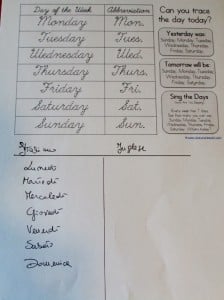 Day of the Week Abbreviation
Monday Mon.
Tuesday Tues.
Wednesday Wed.
Thursday Thurs.
Friday Fri.
Saturday Sat.
Sunday Sun.
Can you trace
the day today?
Yesterday was:
Sunday, Monday, Tuesday,
Wednesday, Thursday,
Friday, Saturday.
Tomorrow will be:
Sunday, Monday, Tuesday,
Wednesday, Thursday,
Friday, Saturday.
Sing the Days
Italiano Inglese
Lunedì
Martedì
Mercoledì
Giovedì
Venerdì
Sabato
Domenica